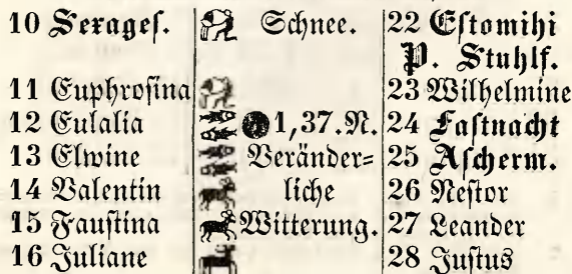 10 Sexages. Schnee. 22 Estomihi
P. Stuhlf.
11 Euphrosina 23 Wilhelmine
12 Eulalia 1,37.N. 24 Fastnacht
13 Elwine Veränder= 25 Ascherm.
14 Valentin liche 26 Nestor
15 Faustina Witterung. 27 Leander
16 Juliane 28 Justus